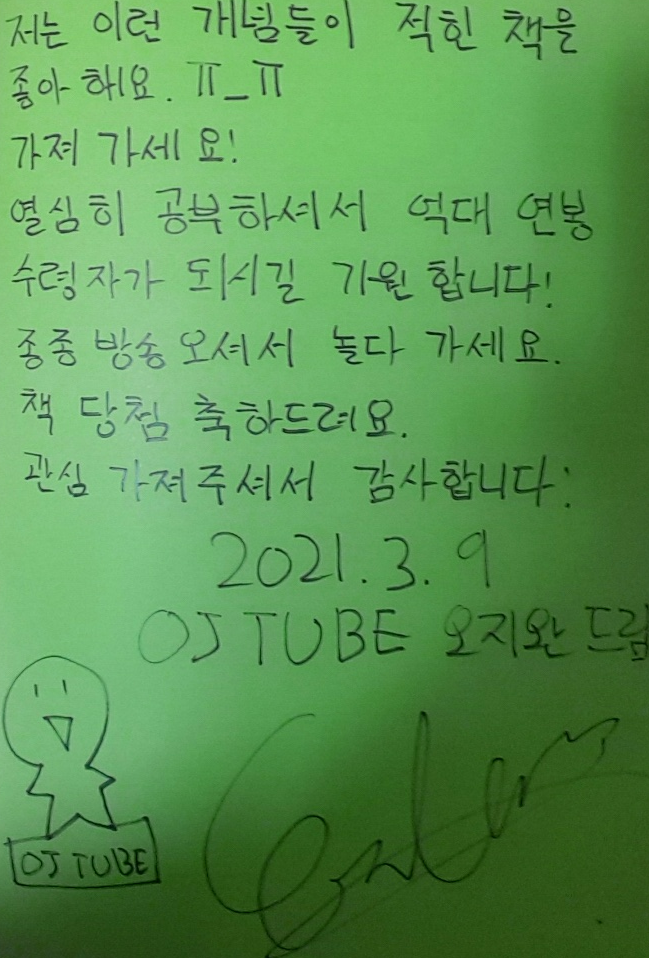 저는 이런 개념들이 적힌 책을
좋아 해요. ㅠ_ㅠ
가져 가세요!
열심히 공부하셔서 억대 연봉
수령자가 되시길 기원 합니다!
종종 방송 오셔서 놀다 가세요.
책 당첨 축하드려요.
관심 가져주셔서 감사합니다:
2021.3.9
OJ TUBE 오지완 드림
OJ TUBE